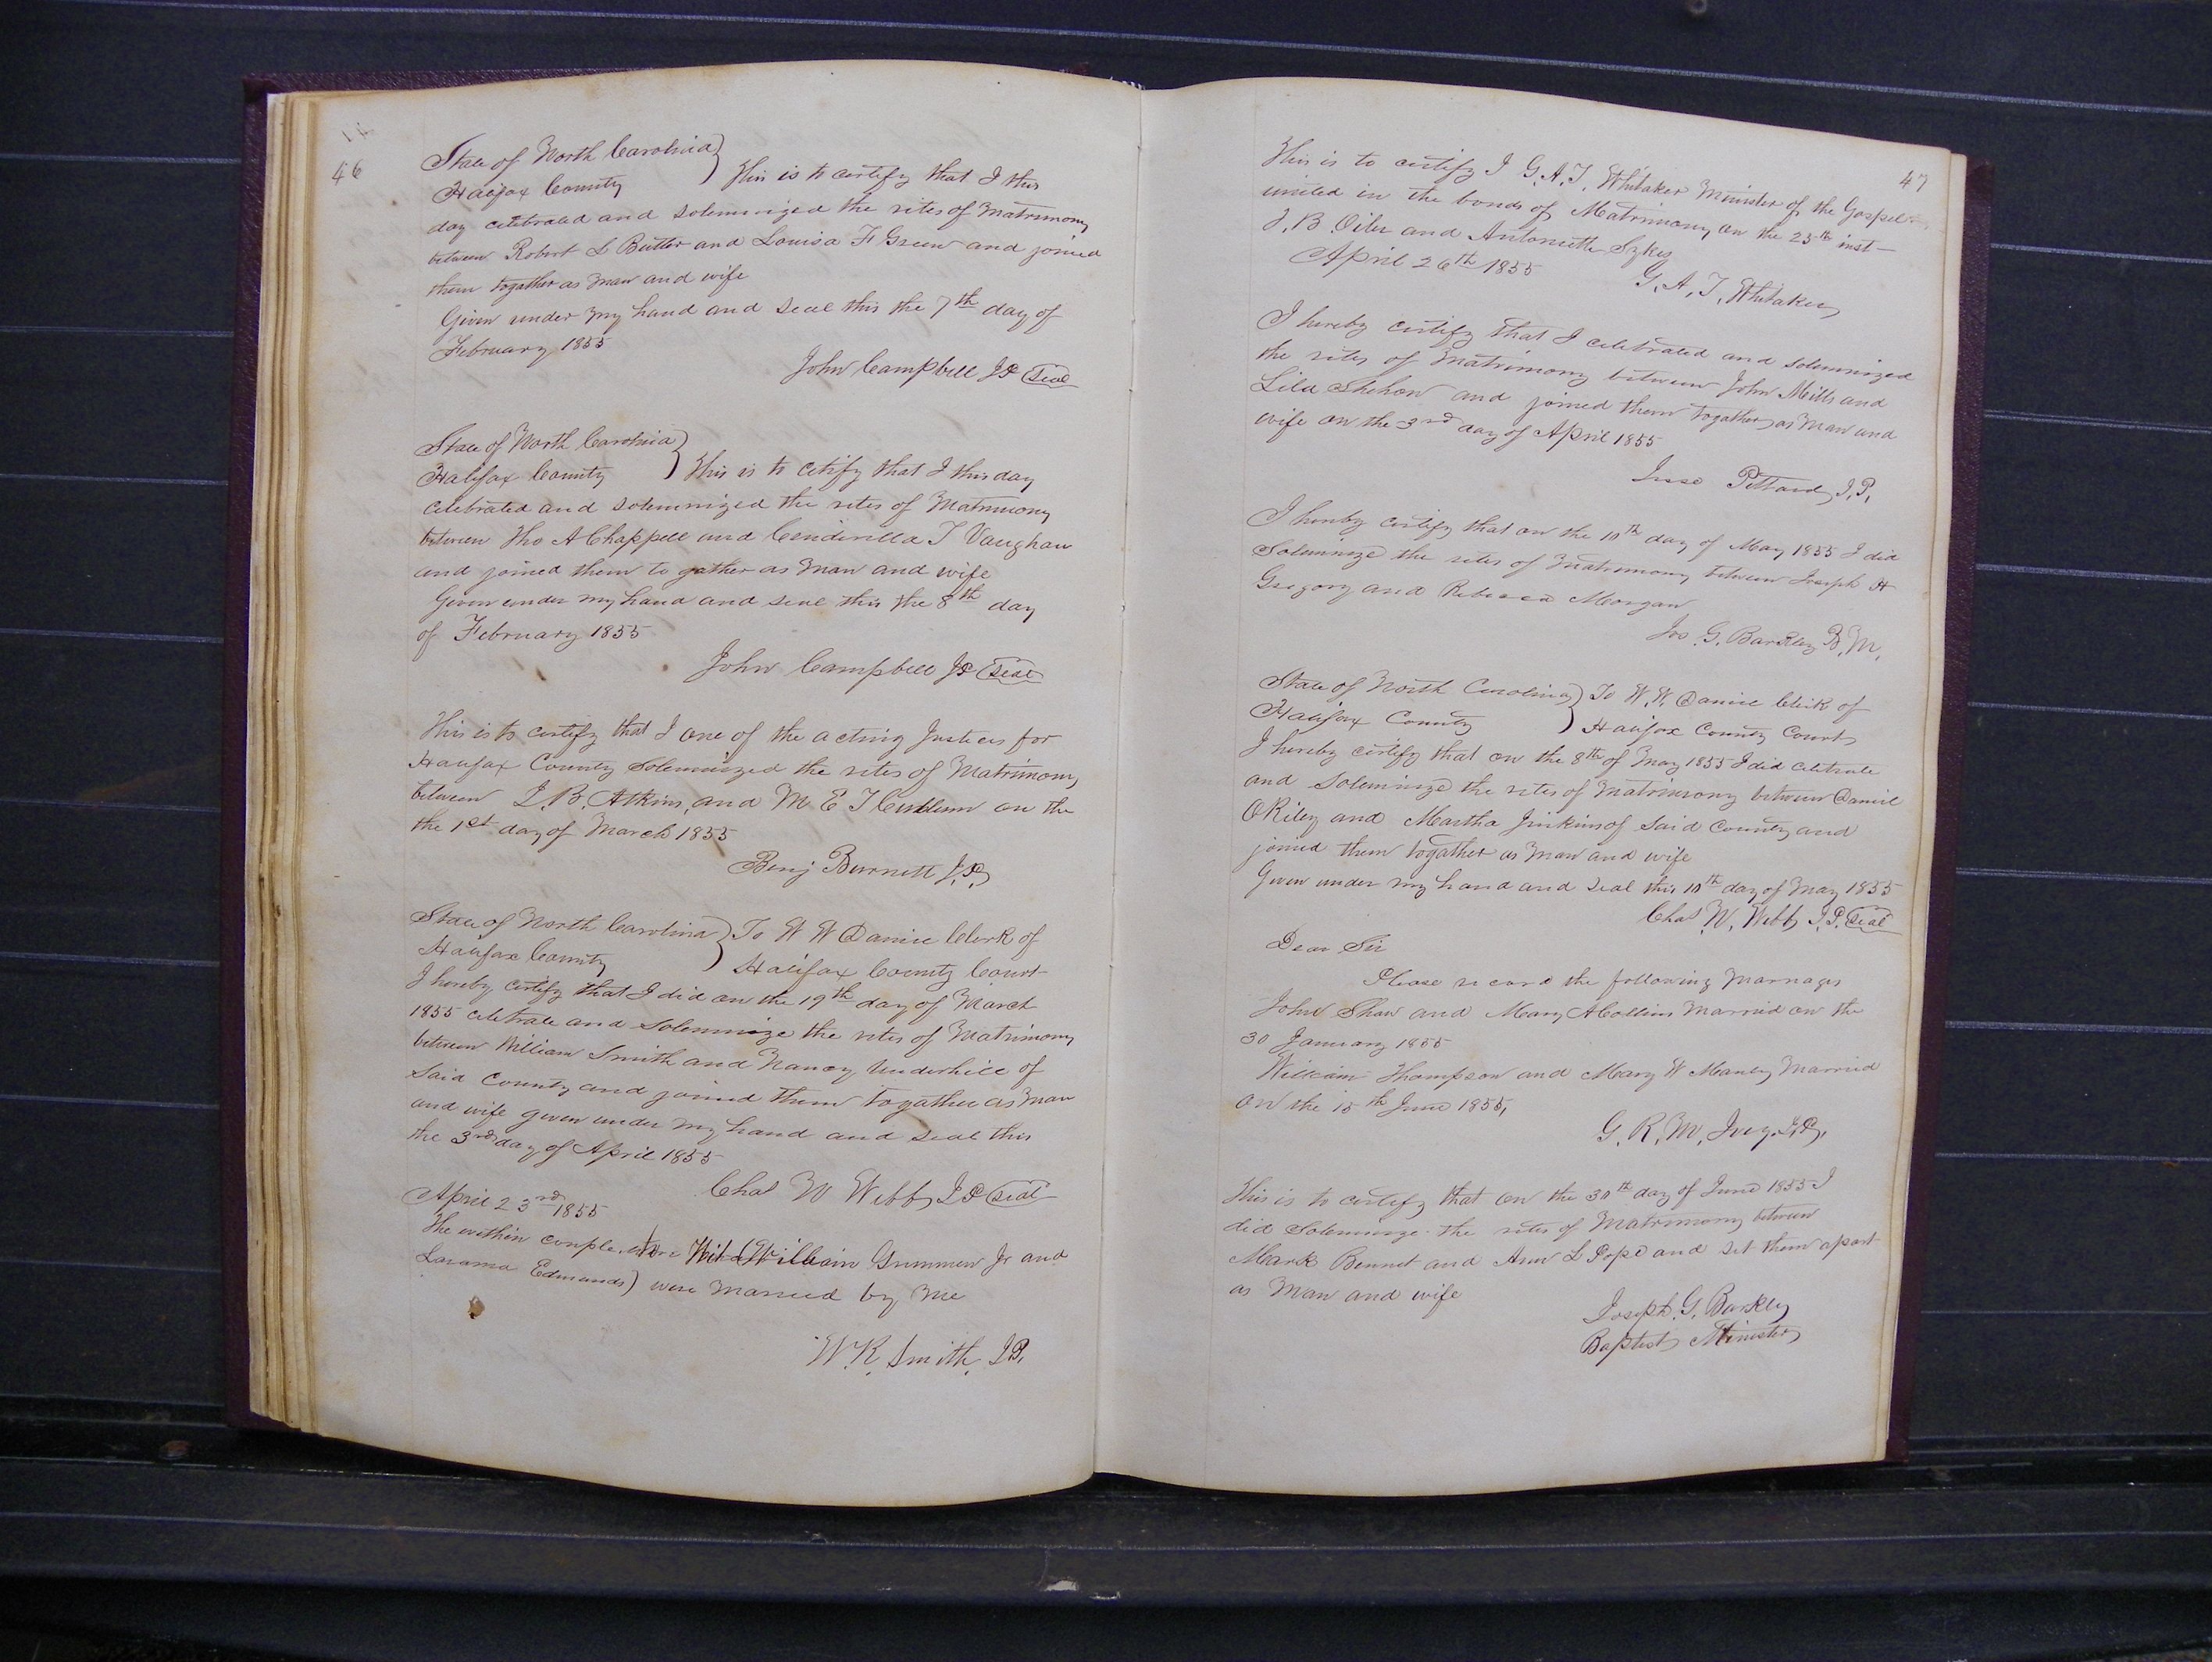 46
State of North Carolina
Halifax County } This is to certify that I this
day celebrated and solemnized the rites of Matrimony
between Robert L Butler and Louisa F Green and joined
them togather as man and wife
Given under my hand and seal this the 7th day of
February 1855
John Campbell JP Seal
State of North Carolina
Halifax County } This is to cetify that I this day
celebrated and solemnized the rites of Matrimony
between Tho A Chappell and Cendirella T Vaughan
and joined them to gather as man and wife
Given under my hand and seal this the 8th day
of February 1855
John Campbell JP Seal
This is to certify that I one of the acting Justices for
Halifax County Solemnized the rites of Matrimony
between J. B. Atkins, and M E T Cullum on the
the 1st day of March 1855
Benj Burnett J.P.
State of North Carolina } To W W Daniel Clerk of
Halifax County Halifax County Court
I hereby certify that I did on the 19th day of March
1855 celebrate and Solemnize the rites of Matrimony
between William Smith and Nancy Underhill of
Said County and joined them togather as man
and wife given under my hand and seal this
the 3rd day of April 1855
Chas W Webb J P Seal
April 23rd 1855
The within couple William Grimmer Jr and
Edmunds) were married by me
W. K. Smith, J.P.
47
This is to certify I G. A. T. Whitaker Minister of the Gospel
united in the bonds of Matrimony on the 25th inst-
J. B Oiler and Antoniette Sykes
April 26th 1855
G. A. T. Whitaker
I hereby certify that I celebrated and solemnized
the rites of Matrimony between John Mills and
Lila Shehon and joined them togather as man and
wife on the 3rd day of April 1855
Jesse Pittard J.P.
I hereby certify that on the 10th day of May 1855 I did
Solemnize the rites of Matrimony between Joseph H
Gregory and Rebecca Morgan
Jos G. Barkley B. M.
State of North Carolina } To W. W. Daniel Clerk of
Halifax County Halifax County Court
I hereby certify that on the 8th of May 1855 I did celebrate
and solemnize the rites of Matrimony between Daniel
ORiley and Martha Jinkins of said County and
joined them togather as man and wife
Given under my hand and seal this 10th day of May 1855
Chas W. Webb J.P. Seal
Dear Sir
Please record the following marriages
John Shaw and Mary A Collins Married on the
30 January 1855
William Thompson and Mary W Manley Married
on the 15th June 1855,
G. R. M. Ivey. J.P.
This is to certify that on the 30th day of June 1855 I
did Solemnize the rites of Matrimony between
Mark Bennet and Ann L Pope and set them apart
as man and wife
Joseph. G. Barkley
Baptist Minister